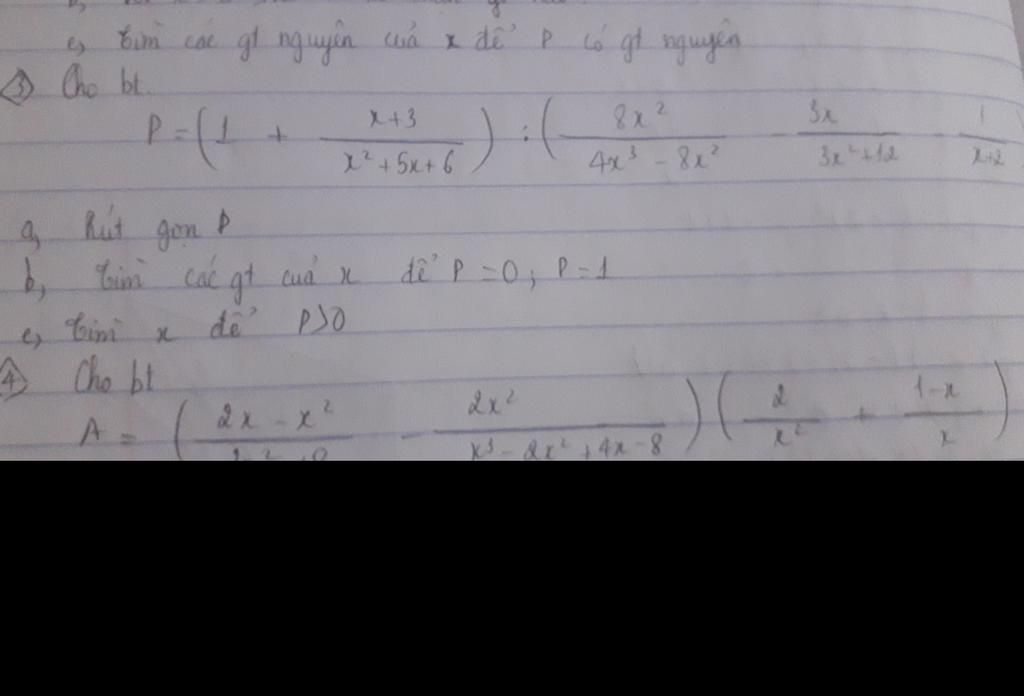 c, tìm các gt nguyên của x để P có gt nguyên
③ Cho bt
P = (1 + (x+3)/(x²+5x+6)) : (8x²/(4x³-8x²) - 3x/(3x²+12) - 1/(x+2)
a, Rút gọn P
b, tìm các gt của x để P = 0, P = 1
c, tìm x để P>0
④ Cho bt
A = ((2x - x²)/ - 2x²/(x³ - 2x² + 4x - 8)) (2/x² + (1-x)/x)